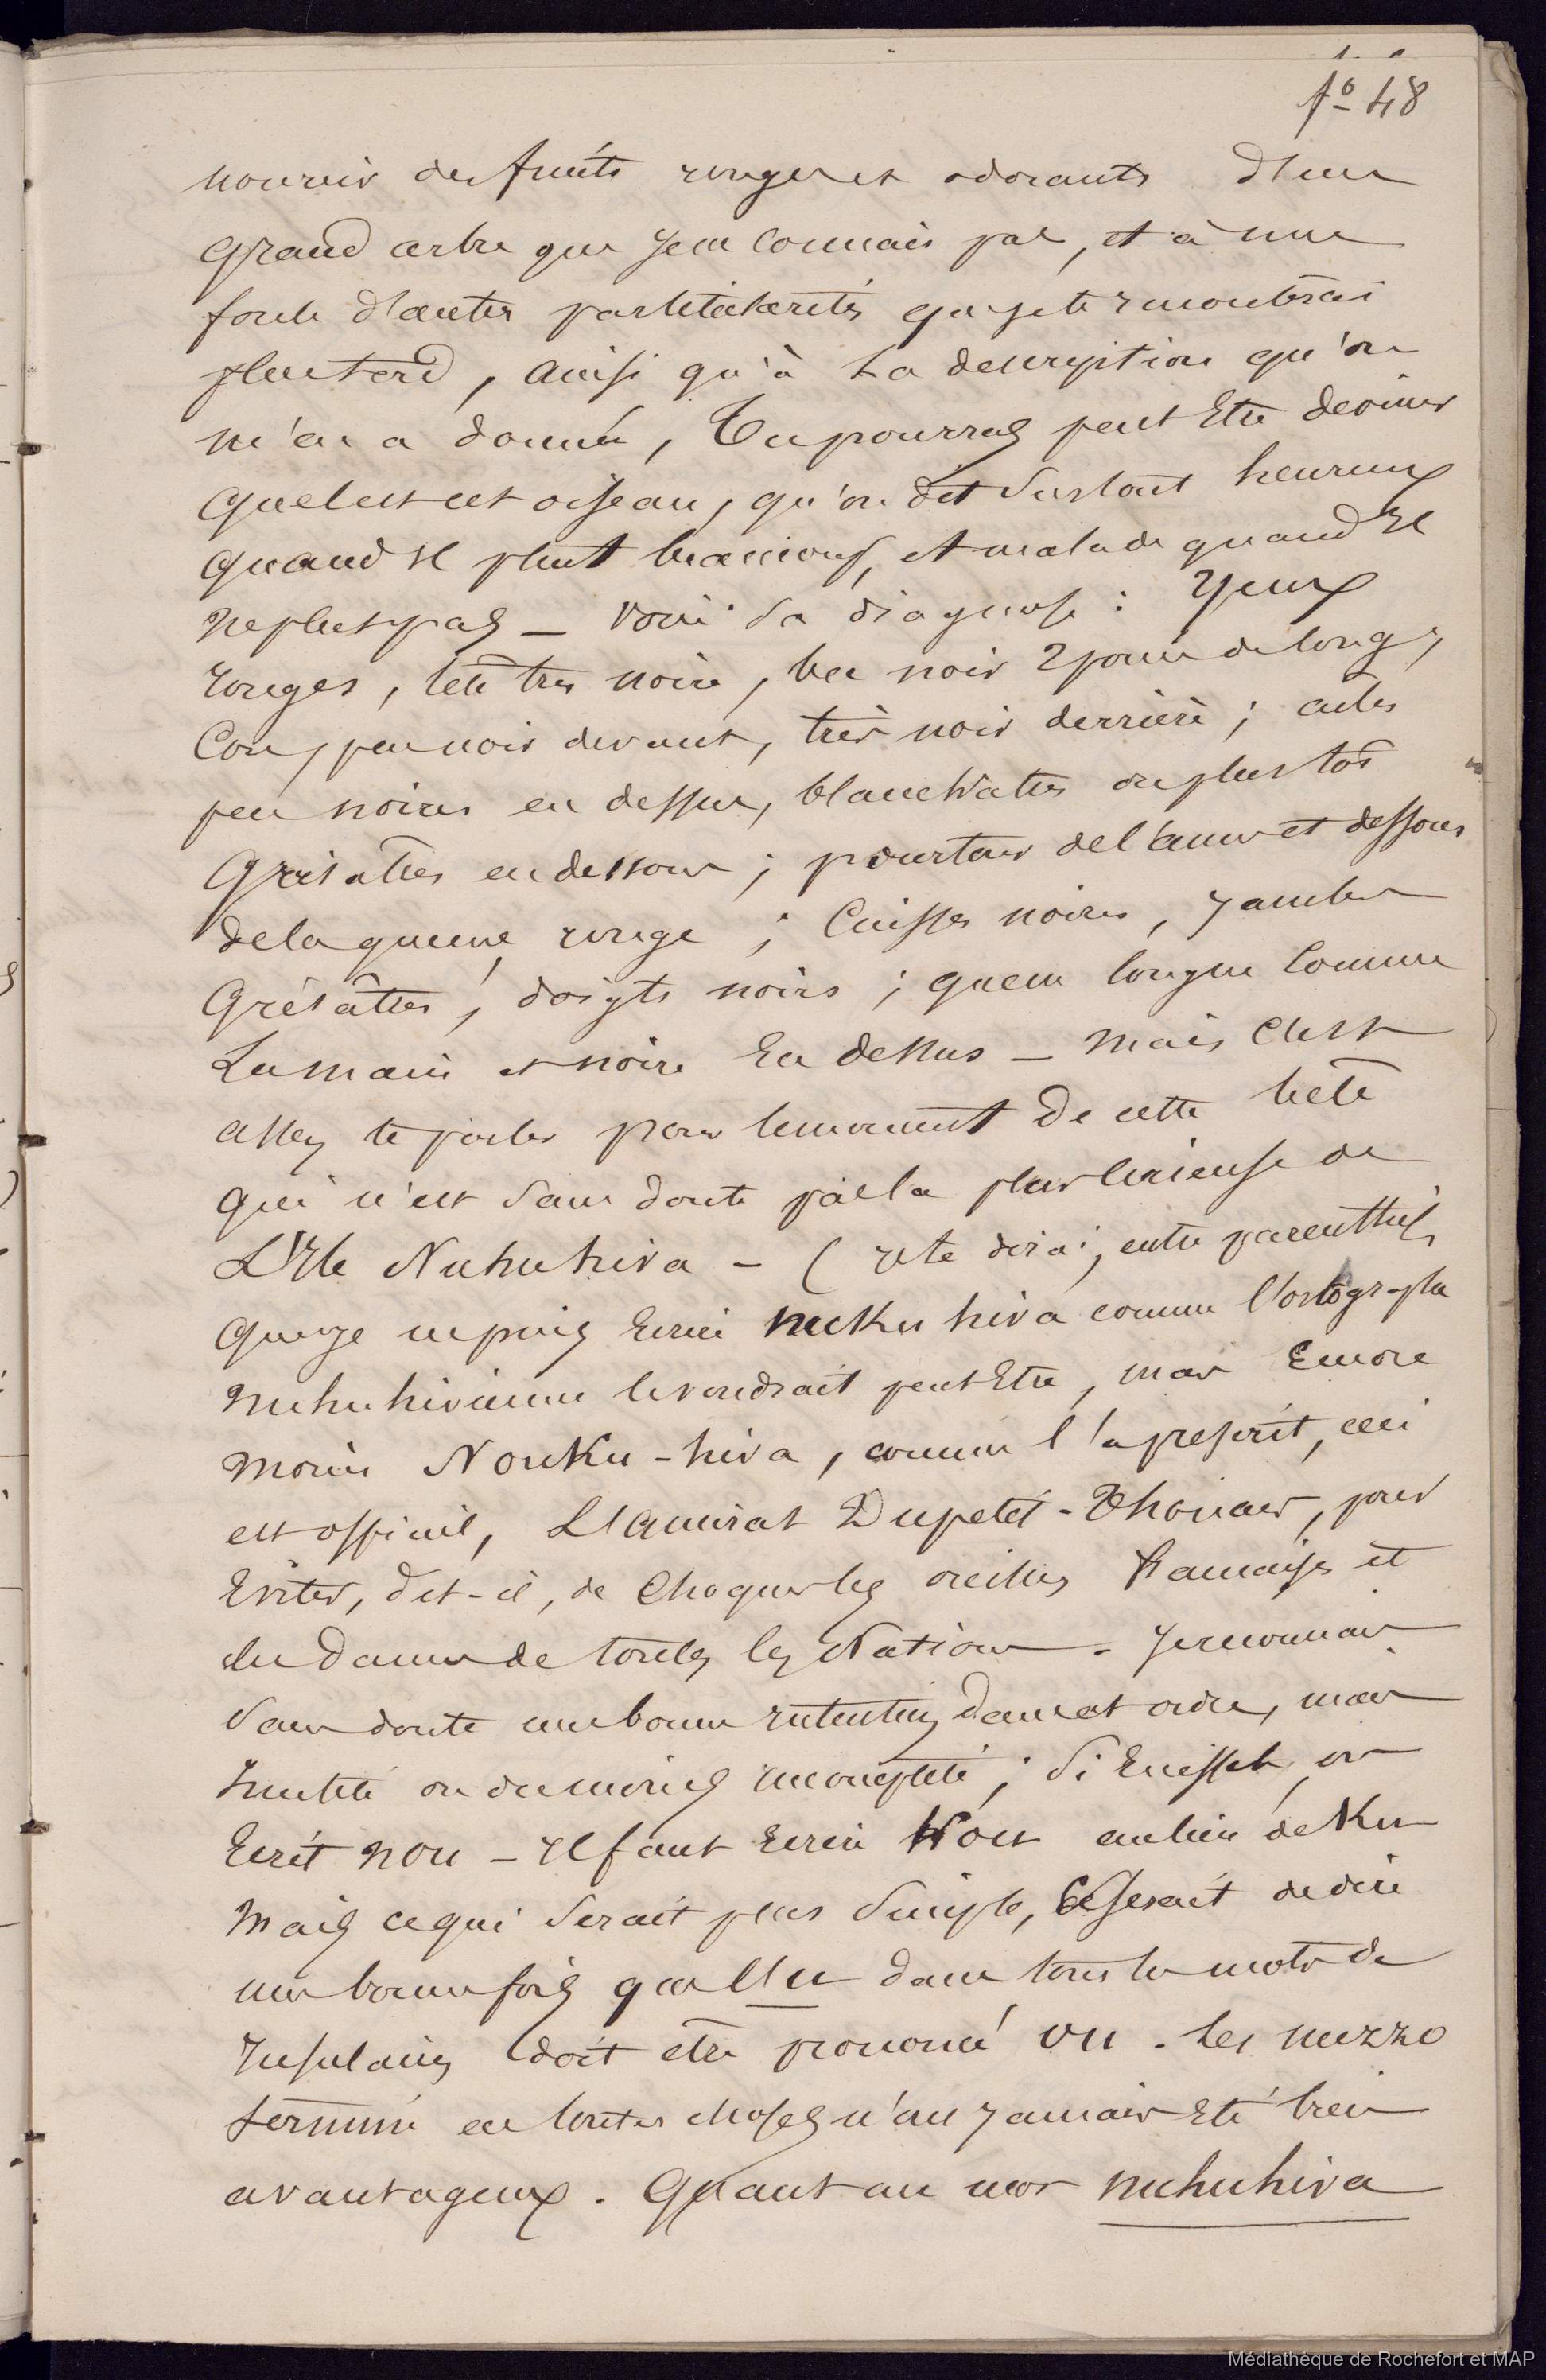 fo 48
nourrir des fruits rouges et odorants d'un
grand arbre que je ne connais pas, et à une
foule d'autres particularités que je te montrerai
plus tard, ainsi qu'à la description qu'on
m'en a donné, Tu pourras peut Etre deviner
quel est cet oiseau, qu'on dit surtout heureux
quand Il pleut beaucoup, et malade quand Il
ne pleut pas — voici sa diagnose : Yeux
rouges, tête très noire, bec noir 2 pouces de long,
Cou, peu noir devant, très noir derrière ; ailes
peu noires en dessus, blanchâtres ou plus tôt
Grisâtres en dessous ; pourtour de l'anus et dessous
de la queue, rouge ; Cuisses noires, Jambes
Grisâtres, doigts noirs ; queue longue comme
La main et noire En dessus — mais C'est
assez te parler pour le moment de cette bête
qui n'est sans doute pas la plus curieuse de
L'Ile Nuhuhiva — ( Je te dirai, entre parenthèses,
que je ne puis Ecrire nuKu hiva comme l'ortographe
nuhuhivienne le voudrait peut Etre, mais Encore
moins NouKu - hiva, comme l'a prescrit, ceci
est officiel, L'amiral Dupetit - Thouars, pour
Eviter, dit - il, de Choquer les oreilles francaises et
des Dames de toutes les Nations. Je reconnais
sans doute une bonne intention dans cet ordre, mais
Inutile ou du moins incomplète ; si En effet, on
Ecrit nou — Il faut Ecrire Kou au lieu de Ku
mais ce qui serait plus simple, Ce serait de dire
une bonne fois que l'u dans tous les mots de
Insulaires doit être prononcé ou. Les mezzo
termine en toutes choses n'ont jamais Eté bien
avantageux. Quant au mot nuhuhiva
Médiathèque de Rochefort et MAP